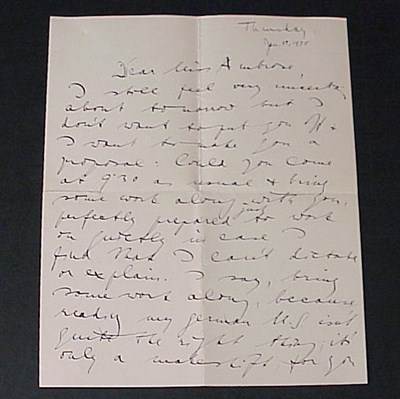 Thursday
Dear Miss Ambrose,
I still feel very uncertain
about to-morrow but I
don't want to put you off &
I want to make you a
proposal: Could you come
at 9'30 as usual & bring
some work along with you,
perfectly prepared just to work
on quietly in case I
find that I can't dictate
or explain. I say, bring
some work along, because
reading my german M.S. isn't
quite the right thing; it's
only a makeshift for you